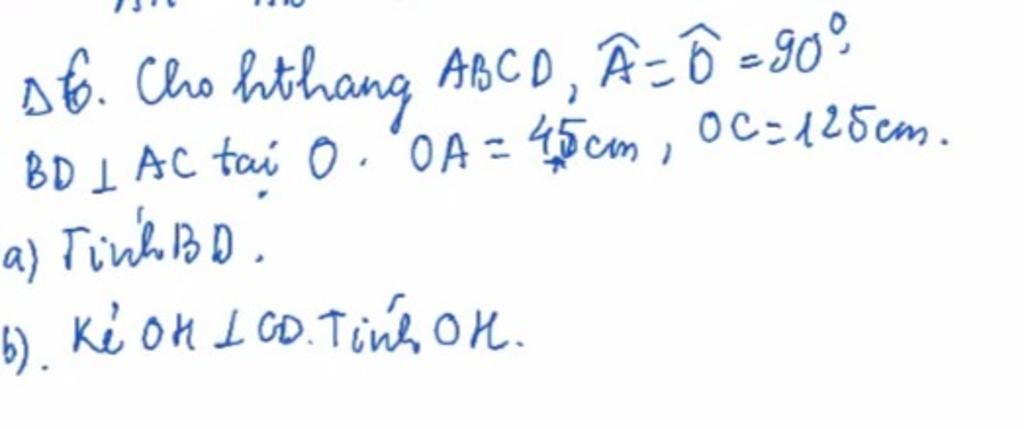 B6. Cho hthang ABCD, Â = D̂ = 90°.
BD ⊥ AC tại O. OA = 45cm, OC = 125cm.
a) Tính BD.
b). Kẻ OH ⊥ CD. Tính OH.